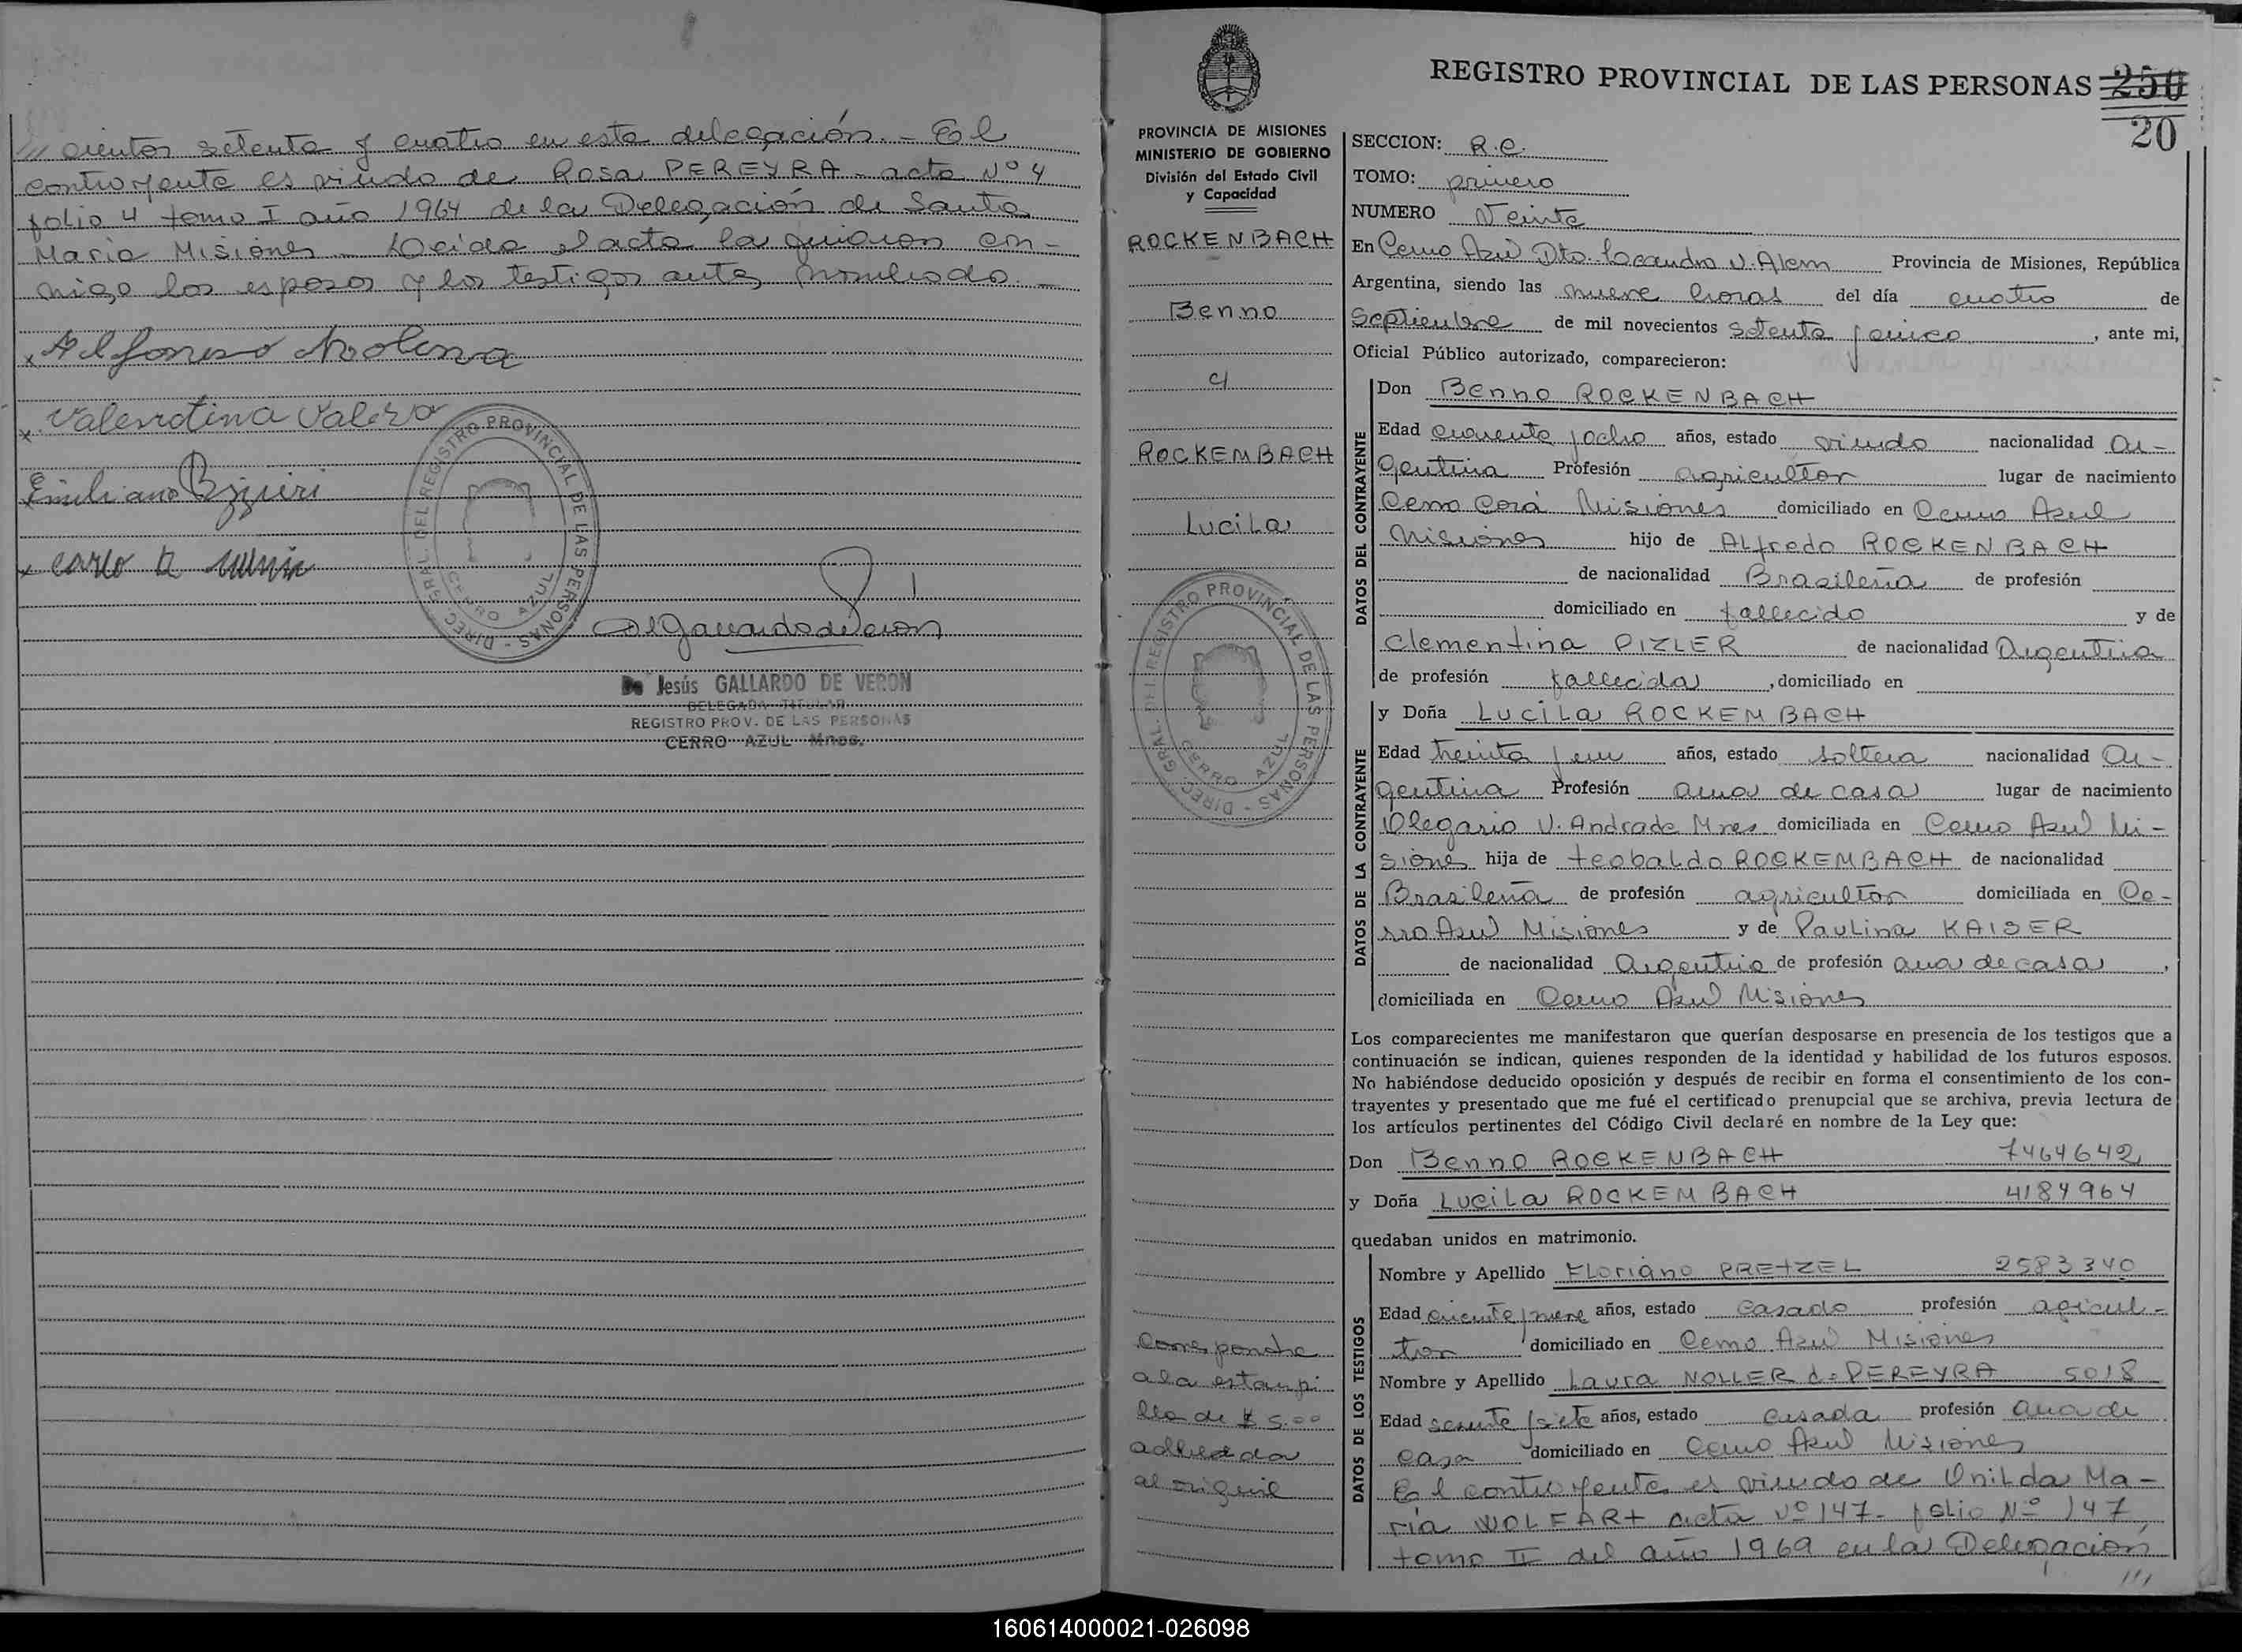 /// cientos setenta y cuatro en esta delegación.- El
contrayente es viudo de Rosa PEREYRA - acta Nº 4
folio 4 tomo I año 1964 de la Delegación de Santa
Maria Misiones - Leida el acta la firman con-
migo los esposos y los testigos antes nombrado.-
x Alfonso Molina
x Valentina Valero
Emiliano
x
DIREC. GRAL. DEL REGISTRO PROVINCIAL DE LAS PERSONAS -
CERRO AZUL
DGallardodeveron
De Jesús GALLARDO DE VERON
DELEGADA TITULAR
REGISTRO PROV. DE LAS PERSONAS
CERRO AZUL Mnes.
PROVINCIA DE MISIONES
MINISTERIO DE GOBIERNO
División del Estado Civil
y Capacidad
ROCKENBACH
Benno
c/
ROCKEMBACH
Lucila
DIREC. GRAL. DEL REGISTRO PROVINCIAL DE LAS PERSONAS -
CERRO AZUL
Corresponde
a la estampi
lla de $ 5.00
adherida
al
REGISTRO PROVINCIAL DE LAS PERSONAS 250
20
SECCION: R.C.
TOMO: primero
NUMERO Veinte
En Cerro Azul Dto. Leandro N. Alem Provincia de Misiones, República
Argentina, siendo las nueve horas del día cuatro de
Septiembre de mil novecientos setenta y cinco, ante mi,
Oficial Público autorizado, comparecieron:
DATOS DEL CONTRAYENTE
Don Benno ROCKENBACH
Edad cuarenta y ocho años, estado viudo nacionalidad Ar-
gentina Profesión agricultor lugar de nacimiento
Cerro Corá Misiones domiciliado en Cerro Azul
Misiones hijo de Alfredo ROCKENBACH
de nacionalidad Brasileña de profesión
domiciliado en fallecido y de
Clementina PIZLER de nacionalidad Argentina
de profesión fallecida, domiciliado en
DATOS DE LA CONTRAYENTE
y Doña Lucila ROCKEMBACH
Edad treinta y un años, estado soltera nacionalidad Ar-
gentina Profesión ama de casa lugar de nacimiento
Olegario V. Andrade Mnes domiciliada en Cerro Azul Mi-
siones hija de teobaldo ROCKEMBACH de nacionalidad
Brasileña de profesión agricultor domiciliada en Ce-
rro Azul Misiones y de Paulina KAISER
de nacionalidad Argentina de profesión ama de casa,
domiciliada en Cerro Azul Misiones
Los comparecientes me manifestaron que querían desposarse en presencia de los testigos que a
continuación se indican, quienes responden de la identidad y habilidad de los futuros esposos.
No habiéndose deducido oposición y después de recibir en forma el consentimiento de los con-
trayentes y presentado que me fué el certificado prenupcial que se archiva, previa lectura de
los artículos pertinentes del Código Civil declaré en nombre de la Ley que:
Don Benno ROCKENBACH 7464642
y Doña Lucila ROCKEMBACH 4184964
quedaban unidos en matrimonio.
DATOS DE LOS TESTIGOS
Nombre y Apellido Floriano PRETZEL 2583340
Edad años, estado casado profesión agricul-
tor domiciliado en Cerro Azul Misiones
Nombre y Apellido Laura NOLLER de PEREYRA 5018
Edad sesenta y siete años, estado casada profesión ama de
casa domiciliado en Cerro Azul Misiones
El contrayente es viudo de Onilda Ma-
ria WOLFART acta Nº 147- folio Nº 147
tomo II del año 1969 en la Delegación
///
160614000021-026098